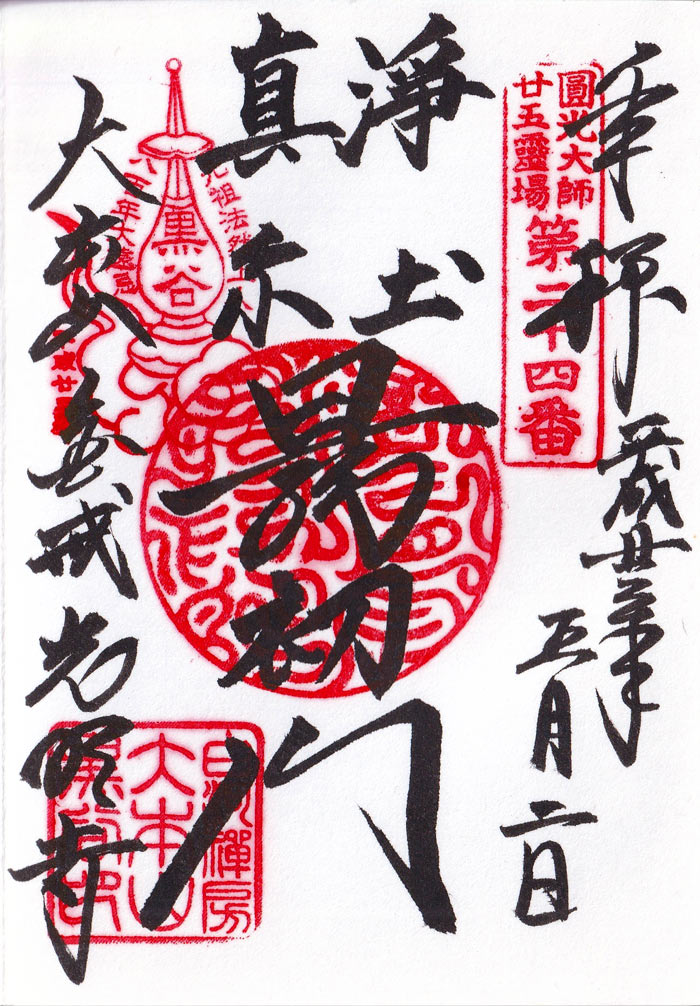 奉拝
平成廿三年
五月二日
圓光大師
廿五靈場
第二十四番
淨土
真宗
最初門
元祖法然上人
黒谷
八百年大遠忌
大本山
金戒光明寺
禪房
大本山